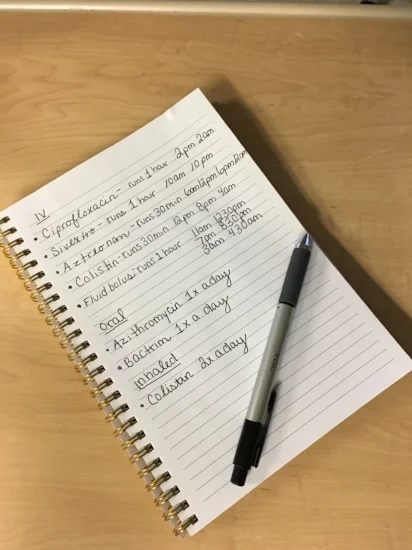 IV
• Ciprofloxacin- runs 1 hour 2pm 2am
• Sivextro- runs 1 hour 10am 10pm
• Aztreonam- runs 30min 6am 12pm 6pm 12am
• Colistin- runs 30min 12pm 8pm 4am
• Fluid bolus- runs 1 hour 11am 1230pm
7pm 830pm
3am 430am
Oral
• Azithromycin 1x a day
• Bactrim 1x a day
Inhaled
• Colistan 2x a day